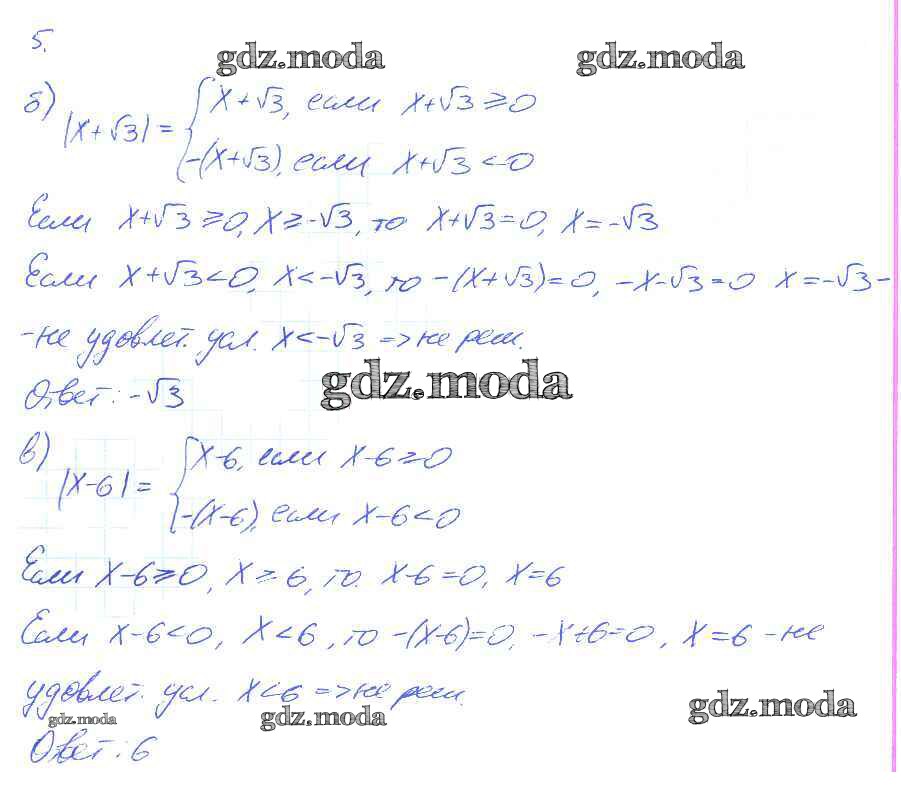 5.
gdz.moda gdz.moda
б) |x+√3| = { x+√3, если x+√3 ≥ 0
-(x+√3), если x+√3 < 0
Если x+√3 ≥ 0, x ≥ -√3, то x+√3 = 0, x = -√3
Если x+√3 < 0, x < -√3, то -(x+√3) = 0, -x-√3 = 0 x = -√3 -
- не удовлет. усл. x < -√3 => не реш.
gdz.moda
Ответ: -√3
в) |x-6| = { x-6, если x-6 ≥ 0
-(x-6), если x-6 < 0
Если x-6 ≥ 0, x ≥ 6, то. x-6 = 0, x = 6
Если x-6 < 0, x < 6, то -(x-6) = 0, -x+6 = 0, x = 6 - не
удовлет. усл. x < 6 => не реш.
gdz.moda gdz.moda gdz.moda
Ответ: 6